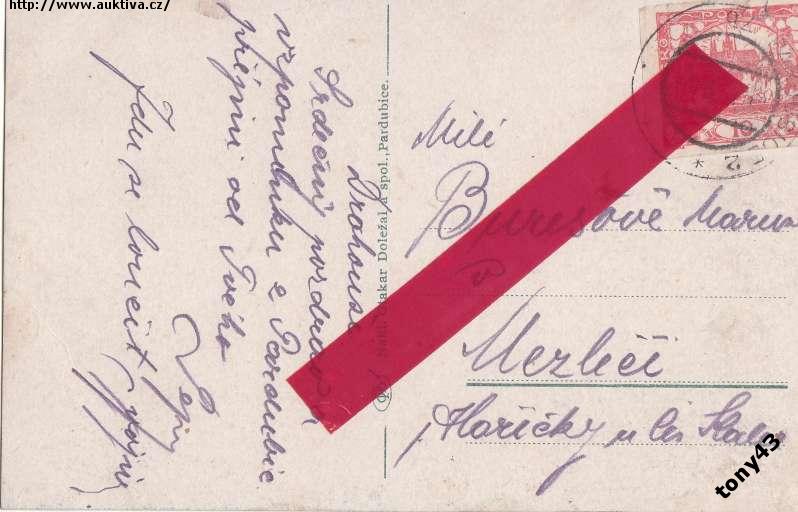 http://www.auktiva.cz/
Drahouši
Srdečný pozdrav a
vzpomínku z Pardubic
přijmi od Tvého
Pepy
Jdu se loučit
Nakl. Otakar Doležal a spol., Pardubice.
Milé
Burešové
v
Mezlečí
Haříčky u Čes Skalice
tony43